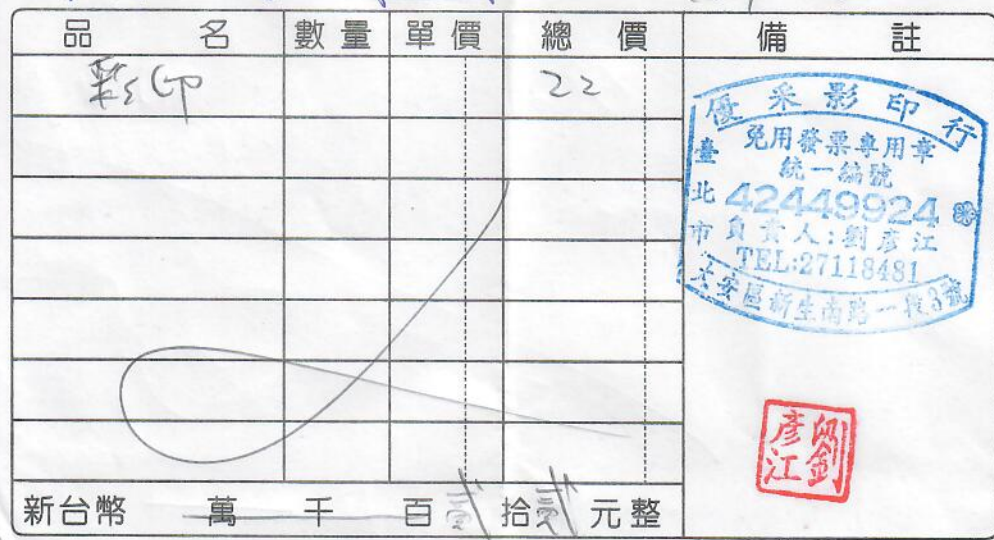 品名 數量 單價 總價 備註
彩印 22
優采影印行
免用發票專用章
統一編號
42449924
負責人:劉彥江
TEL:27118481
臺北市
大安區新生南路一段3號
劉彥江
新台幣 萬 千 百 貳 拾 貳 元整